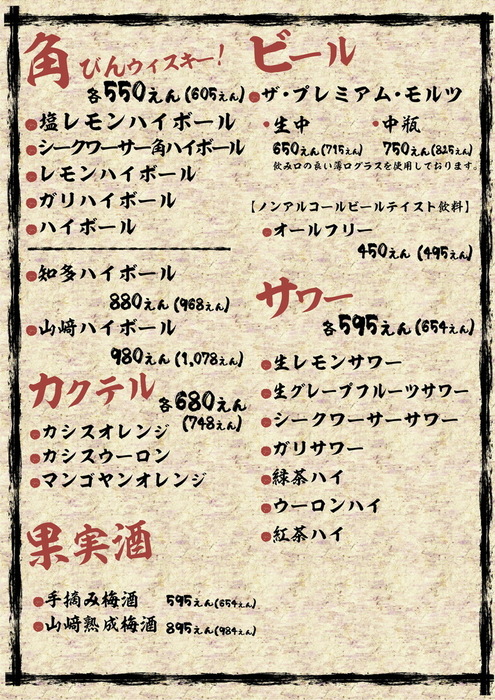 角 びんウィスキー！
各550えん(605えん)
●塩レモンハイボール
●シークワーサー角ハイボール
●レモンハイボール
●ガリハイボール
●ハイボール
●知多ハイボール
880えん(968えん)
●山崎ハイボール
980えん(1,078えん)
カクテル 各680えん
(748えん)
●カシスオレンジ
●カシスウーロン
●マンゴヤンオレンジ
果実酒
●手摘み梅酒 595えん(654えん)
●山崎熟成梅酒 895えん(984えん)
ビール
●ザ・プレミアム・モルツ
●生中 ●中瓶
650えん(715えん) 750えん(825えん)
飲み口の良い薄口グラスを使用しております。
【ノンアルコールビールテイスト飲料】
●オールフリー
450えん (495えん)
サワー
各595えん(654えん)
●生レモンサワー
●生グレープフルーツサワー
●シークワーサーサワー
●ガリサワー
●緑茶ハイ
●ウーロンハイ
●紅茶ハイ